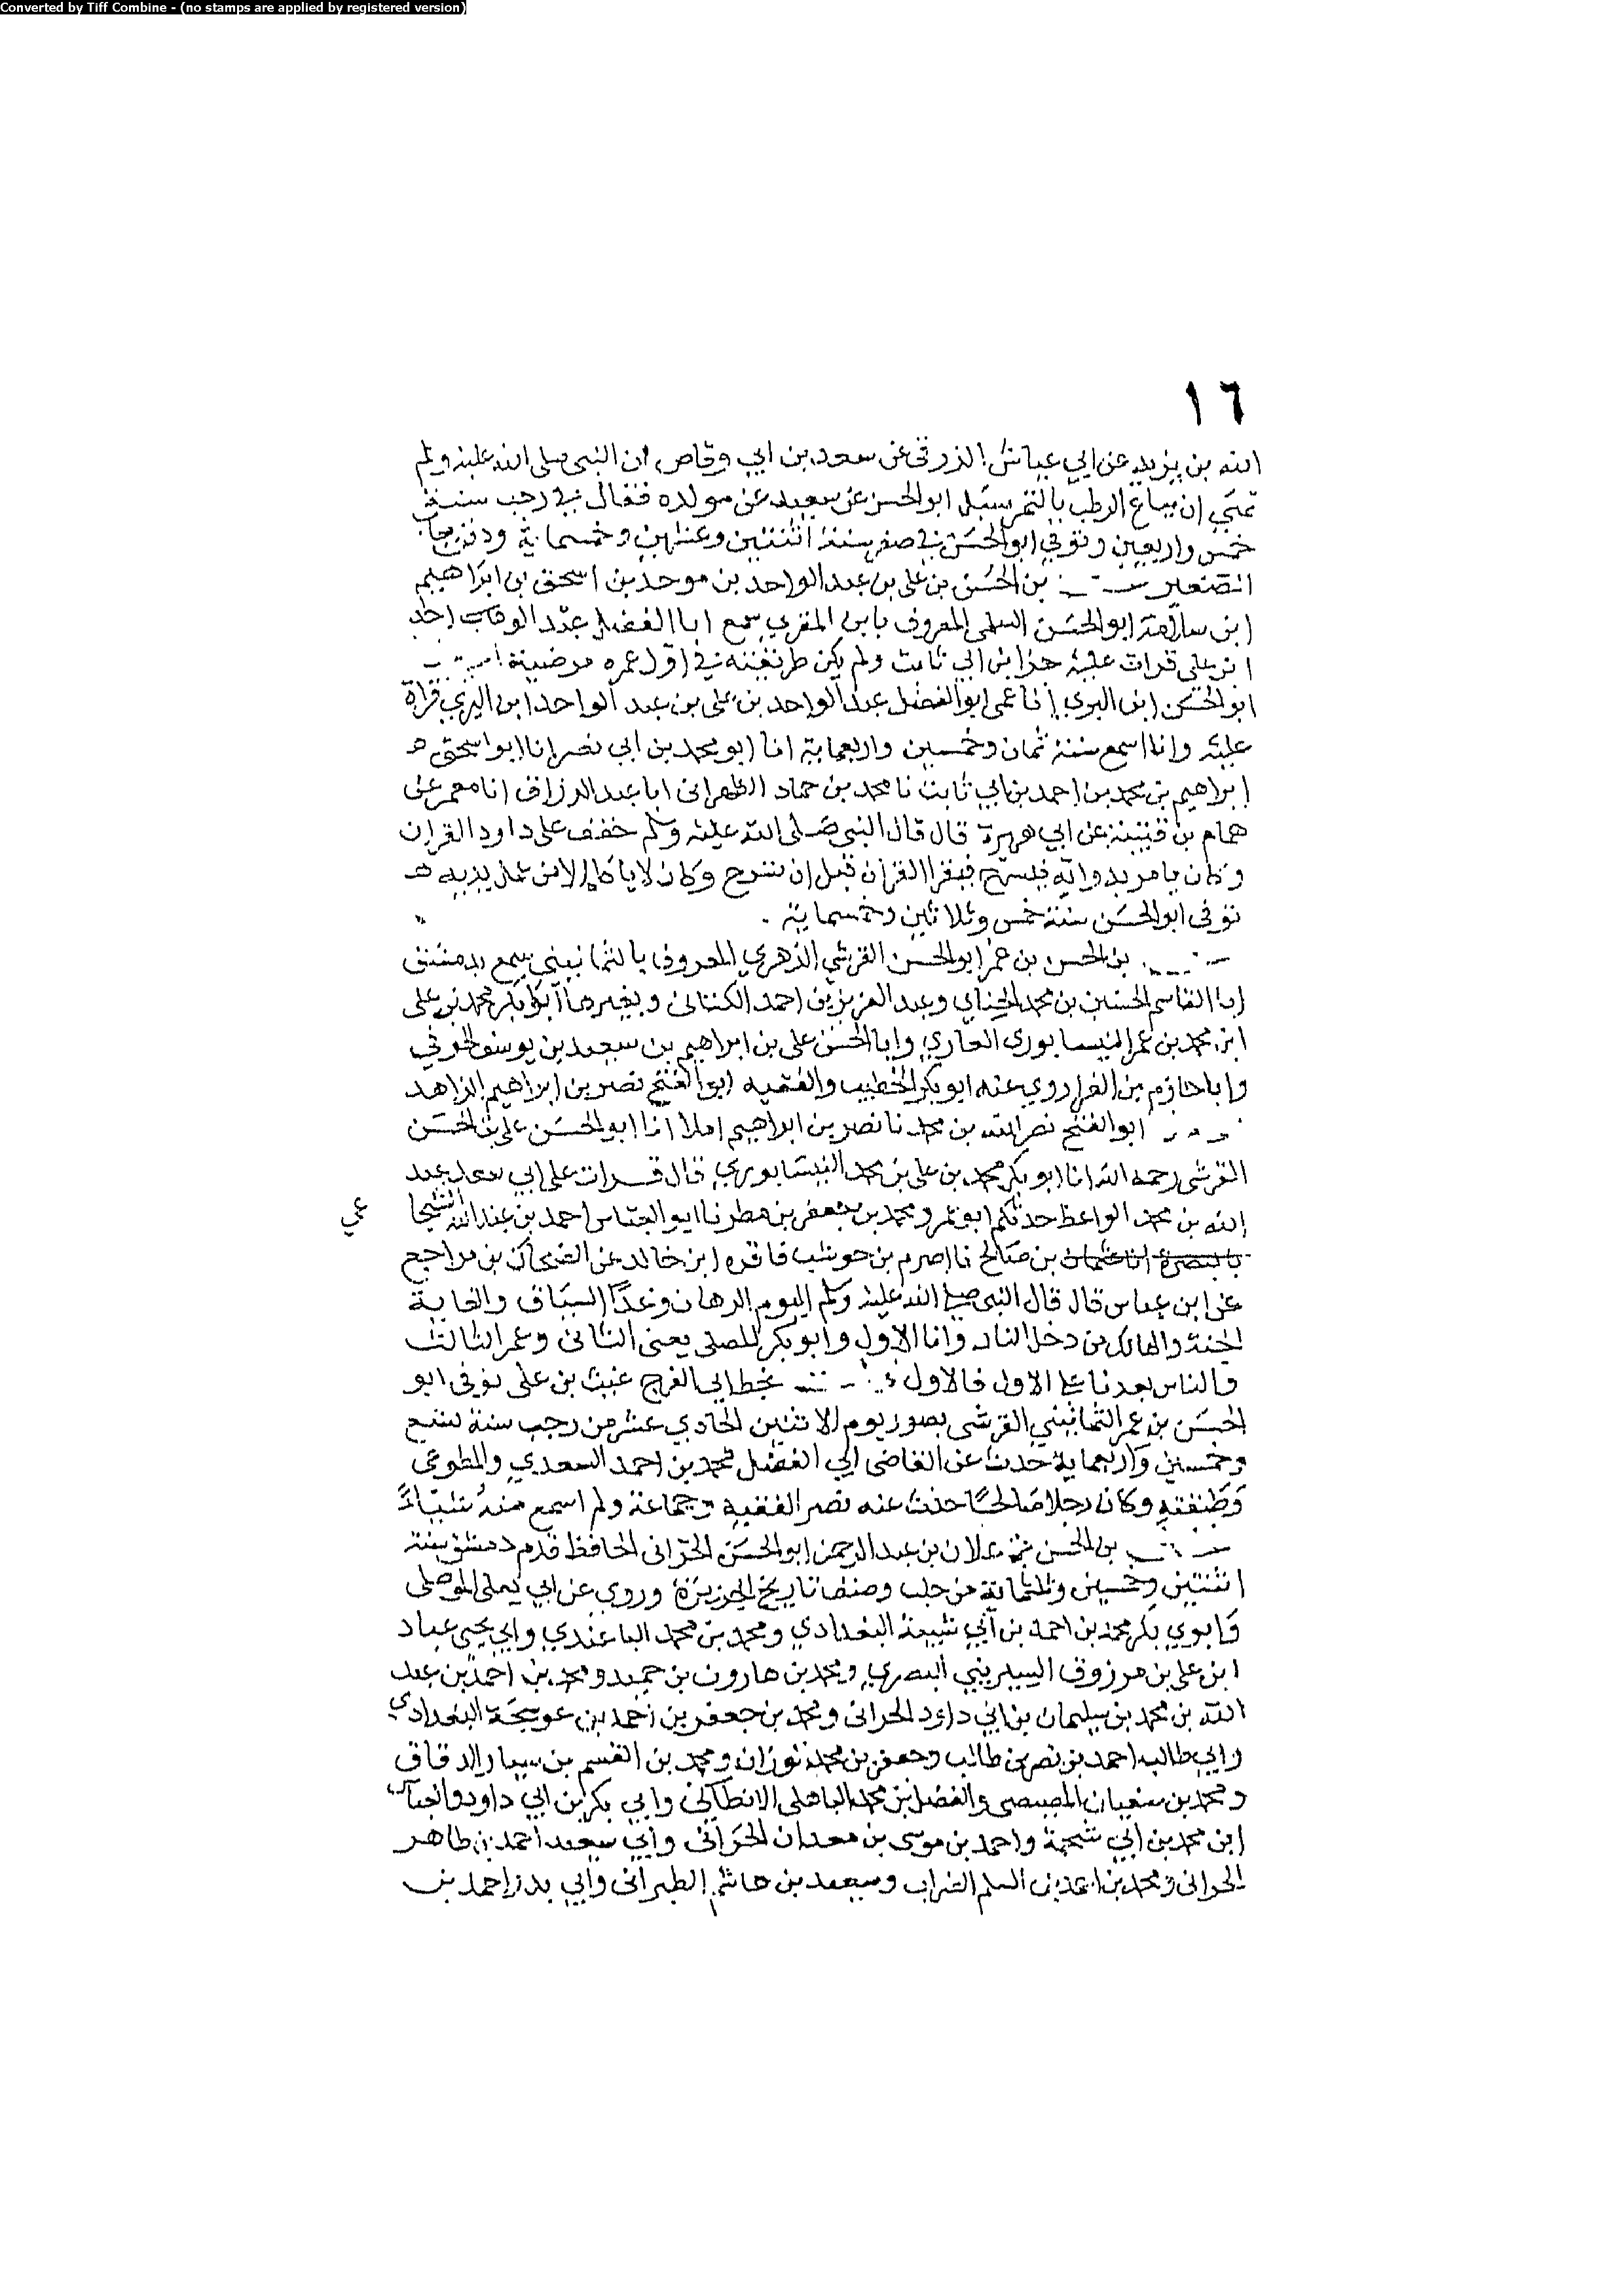 Converted by Tiff Combine - (no stamps are applied by registered version)
١٦
الله بن يزيد عن ابي عياش الزرقي عن سعد بن ابي وقاص ان النبي صلى الله عليه وسلم
ان يباع الرطب بالتمر سئل ابو الحسن عن سعيد عن مولده فقال في رجب سنة
خمس واربعين وتوفي ابو الحسن في صفر سنة اثنتين وعشرين وخمسماية ودفن
بن الحسن بن علي بن عبد الواحد بن موحد بن اسحق بن ابراهيم
ابن سلامة ابو الحسن السلمي المعروف بابن المقري سمع ابا الفضل عبد الوهاب
ابن علي قرات عليه جزا ابن ابي ثابت ولم يكن طريقته في اول عمره مرضية
ابو الحسن ابن البري انا عمي ابو الفضل عبد الواحد بن علي بن عبد الواحد ابن البري قراة
عليه وانا اسمع سنة ثمان وخمسين واربعماية انا ابو محمد بن ابي نصر انا ابو اسحق
ابراهيم بن محمد بن احمد بن ابي ثابت نا محمد بن حماد الظهراني انا عبد الرزاق انا معمر عن
همام بن عن ابي هريرة قال قال النبي صلى الله عليه وسلم خفف على داود القران
وكان يامر بدوابه فتسرج فيقرا القران قبل ان تسرج وكان لا ياكل الا من عمل يديه
توفي ابو الحسن سنة خمس وثلاثين وخمسماية
بن الحسن بن عمر ابو الحسن القرشي الزهري المعروف بالثمانيني سمع بدمشق
ابا القاسم الحسين بن محمد الحناي وعبد العزيز بن احمد الكتاني وبغيرها ابا بكر محمد بن علي
ابن محمد بن عمر النيسابوري الغازي وابا الحسن علي بن ابراهيم بن سعيد بن يوسف الحوفي
وابا حازم بن الفرا روي عنه ابو بكر الخطيب والفقيه ابو الفتح نصر بن ابراهيم الزاهد
ابو الفتح نصر الله بن محمد نا نصر بن ابراهيم املا انا ابو الحسن علي بن الحسن
القرشي رحمه الله انا ابو بكر محمد بن علي بن محمد النيسابوري قال قرات على ابي سعد عبد
الله بن محمد الواعظ حدثكم ابو عمرو محمد بن جعفر بن مطر نا ابو العباس احمد بن عبد الله
بالبصرة انا عثمان بن صالح نا اصرم بن حوشب نا قره ابن خالد عن الضحاك بن مزاحم
عن ابن عباس قال قال النبي صلى الله عليه وسلم اليوم الرهان وغدا السباق والغاية
الجنة والهالك من دخل النار وانا الاول وابو بكر المصلي يعني الثاني وعمر الثالث
والناس بعدنا على الاول فالاول بخط ابي الفرج غيث بن علي توفي ابو
الحسن بن عمر الثمانيني القرشي بصور يوم الاثنين الحادي عشر من رجب سنة تسع
وخمسين واربعماية حدث عن القاضي ابي الفضل محمد بن احمد السعدي والمطوعي
وطبقته وكان رجلا صالحا حدث عنه نصر الفقيه وجماعة ولم اسمع منه شيئا
بن الحسن بن علان بن عبد الرحمن ابو الحسن الحراني الحافظ قدم دمشق سنة
اثنتين وخمسين وثلثماية من حلب وصنف تاريخ الجزيرة وروي عن ابي يعلى الموصلي
وابوي بكر محمد بن احمد بن ابي شيبة البغدادي ومحمد بن محمد الباغندي وابي يحيى عباد
ابن علي بن مرزوق السيريني البصري ومحمد بن هارون بن حميد ومحمد بن احمد بن عبد
الله بن محمد بن سليمان بن ابي داود الحراني ومحمد بن جعفر بن احمد بن عوسجة البغدادي
وابي طالب احمد بن نصر بن طالب وجعفر بن محمد ومحمد بن القسم بن سيار الدقاق
ومحمد بن سفيان المصيصي والفضل بن محمد الباهلي الانطاكي وابي بكر بن ابي داود
ابن محمد بن ابي شحمة واحمد بن موسى بن معدان الحراني وابي سعيد احمد بن طاهر
الحراني ومحمد بن احمد بن السلم الضراب وسعيد بن هاشم الطبراني وابي بدر احمد بن